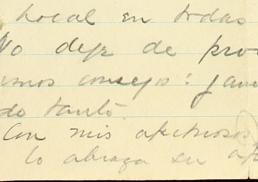 local en todas
No deje de pro
emos consejos: gane
do tanto.
Con mis afectuosos
lo abraza su af